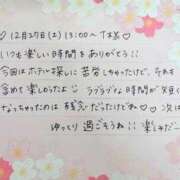 ♡12月27日(土) 13:00〜 T様♡
いつも楽しい時間をありがとう!!
今回はホテル探しに苦労しちゃったけど、それも
含めて楽しめたよ♡ ラブラブな時間が短く
なっちゃったのは残念だったけどね♡ 次は
ゆっくり過ごそうね!! 楽しみだ〜